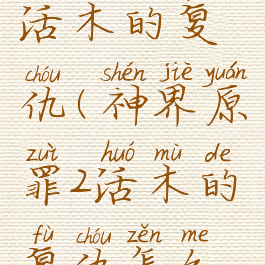 活木的复
chóu shén jiè yuán
仇(神界原
zuì huó mù de
罪2活木的
fù chóu zěn me
复仇怎么